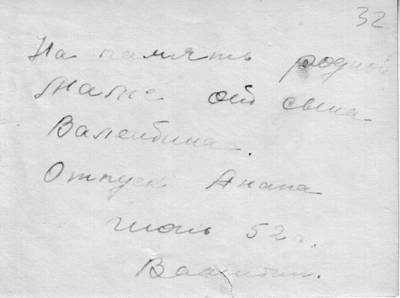 32
На память родной
маме от сына
Валентина.
Отпуск Анапа
июль 52 г.
Валентин.